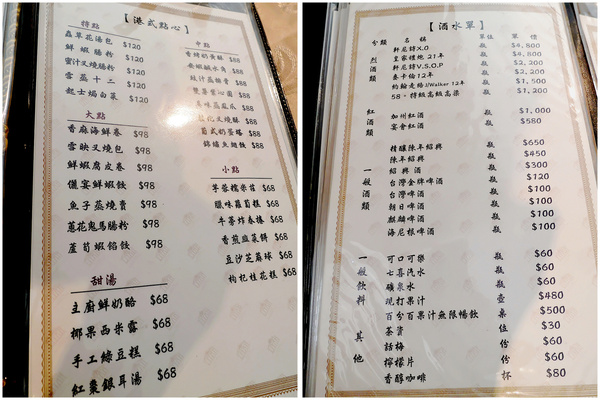 【港式點心】
特點
蟲草花湯包 $120
鮮蝦腸粉 $120
蜜汁叉燒腸粉 $120
$120
起士焗白菜 $120
大點
香麻海鮮卷 $98
雪映叉燒包 $98
鮮蝦腐皮卷 $98
儷宴鮮蝦餃 $98
魚子蒸燒賣 $98
蔥花鬼馬腸粉 $98
蘆筍蝦餡餃 $98
甜湯
主廚鮮奶酪 $68
椰果西米露 $68
手工綠豆糕 $68
紅棗銀耳湯 $68
中點
$88
$88
豉汁蒸 $88
$88
$88
叉燒酥 $88
葡式奶蛋塔 $88
錦繡魚翅餃 $88
小點
芋蓉糯米菻 $68
臘味蘿蔔糕 $68
牛蒡炸春捲 $68
香煎韭菜餅 $68
豆沙芝麻球 $68
枸杞桂花糕 $68
【酒水單】
分類 名稱 單位 單價
烈酒類
軒尼詩X.O 瓶 $4,800
皇家禮炮 21年 瓶 $4,800
軒尼詩V.S.O.P 瓶 $2,200
麥卡倫12年 瓶 $2,200
約翰走路J/Walker 12年 瓶 $1,500
58-特級高級高粱 瓶 $1,200
紅酒類
加州紅酒 瓶 $1,000
宴會紅酒 瓶 $580
一般酒類
精釀陳年紹興 瓶 $650
陳年紹興 瓶 $450
紹興酒 瓶 $300
台灣金牌啤酒 瓶 $120
台灣啤酒 瓶 $100
朝日啤酒 瓶 $100
麒麟啤酒 瓶 $100
海尼根啤酒 瓶 $100
一般飲料
可口可樂 瓶 $60
七喜汽水 瓶 $60
礦泉水 瓶 $60
現打果汁 壺 $480
百分百果汁無限暢飲 桌 $500
其他
茶資 位 $30
話梅 份 $60
檸檬片 份 $60
香醇咖啡 杯 $80